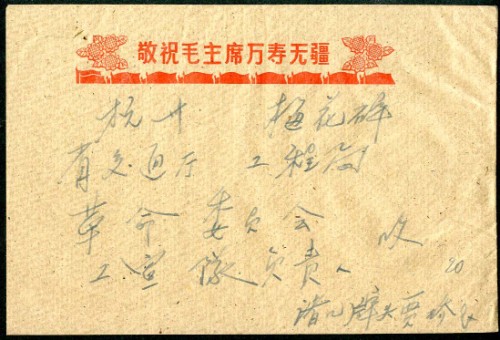 敬祝毛主席万寿无疆
杭州 梅花碑
省交通厅 工程局
革命委员会 收
工宣队负责人
20